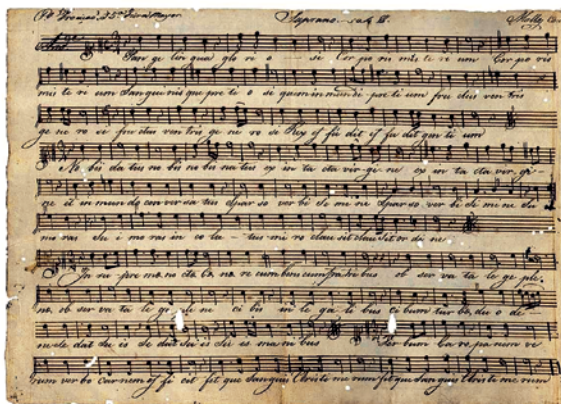 Soprano
Pan ge lin gua glo ri o si Cor po ris mis te ri um Cor po ris
mis te ri um Sanguinis que pre ti o si quem in mundi pre ti um fruc dus ven tris
ge ne ro ci fruc dus ven tris ge ne ro si Rex ef fu dit ef fu dit gen ti um
No bis da tus no bis na tus ex in ta cta vir gi ne ex in ta cta vir gi
ne et in mundo con ver sa tus spar so ver bi se mi ne spar so ver bi se mi ne Su
mo ras Su i mo ras in co la tus mi ro clau sit clau sit or di ne
In su pre mæ no cte cæ næ re cum bens cum fra tri bus ob ser va ta le ge ple
næ ob ser va ta le ge ple ne ci bis in le ga li bus ci bum tur bæ du o de
næ se dat Su is Se dat Su is Su is ma ni bus Ver bum ca ro pa nem ve
rum ver bo car nem ef fi cit fit que sanguis Christi me rum fit que sanguis Christi me rum